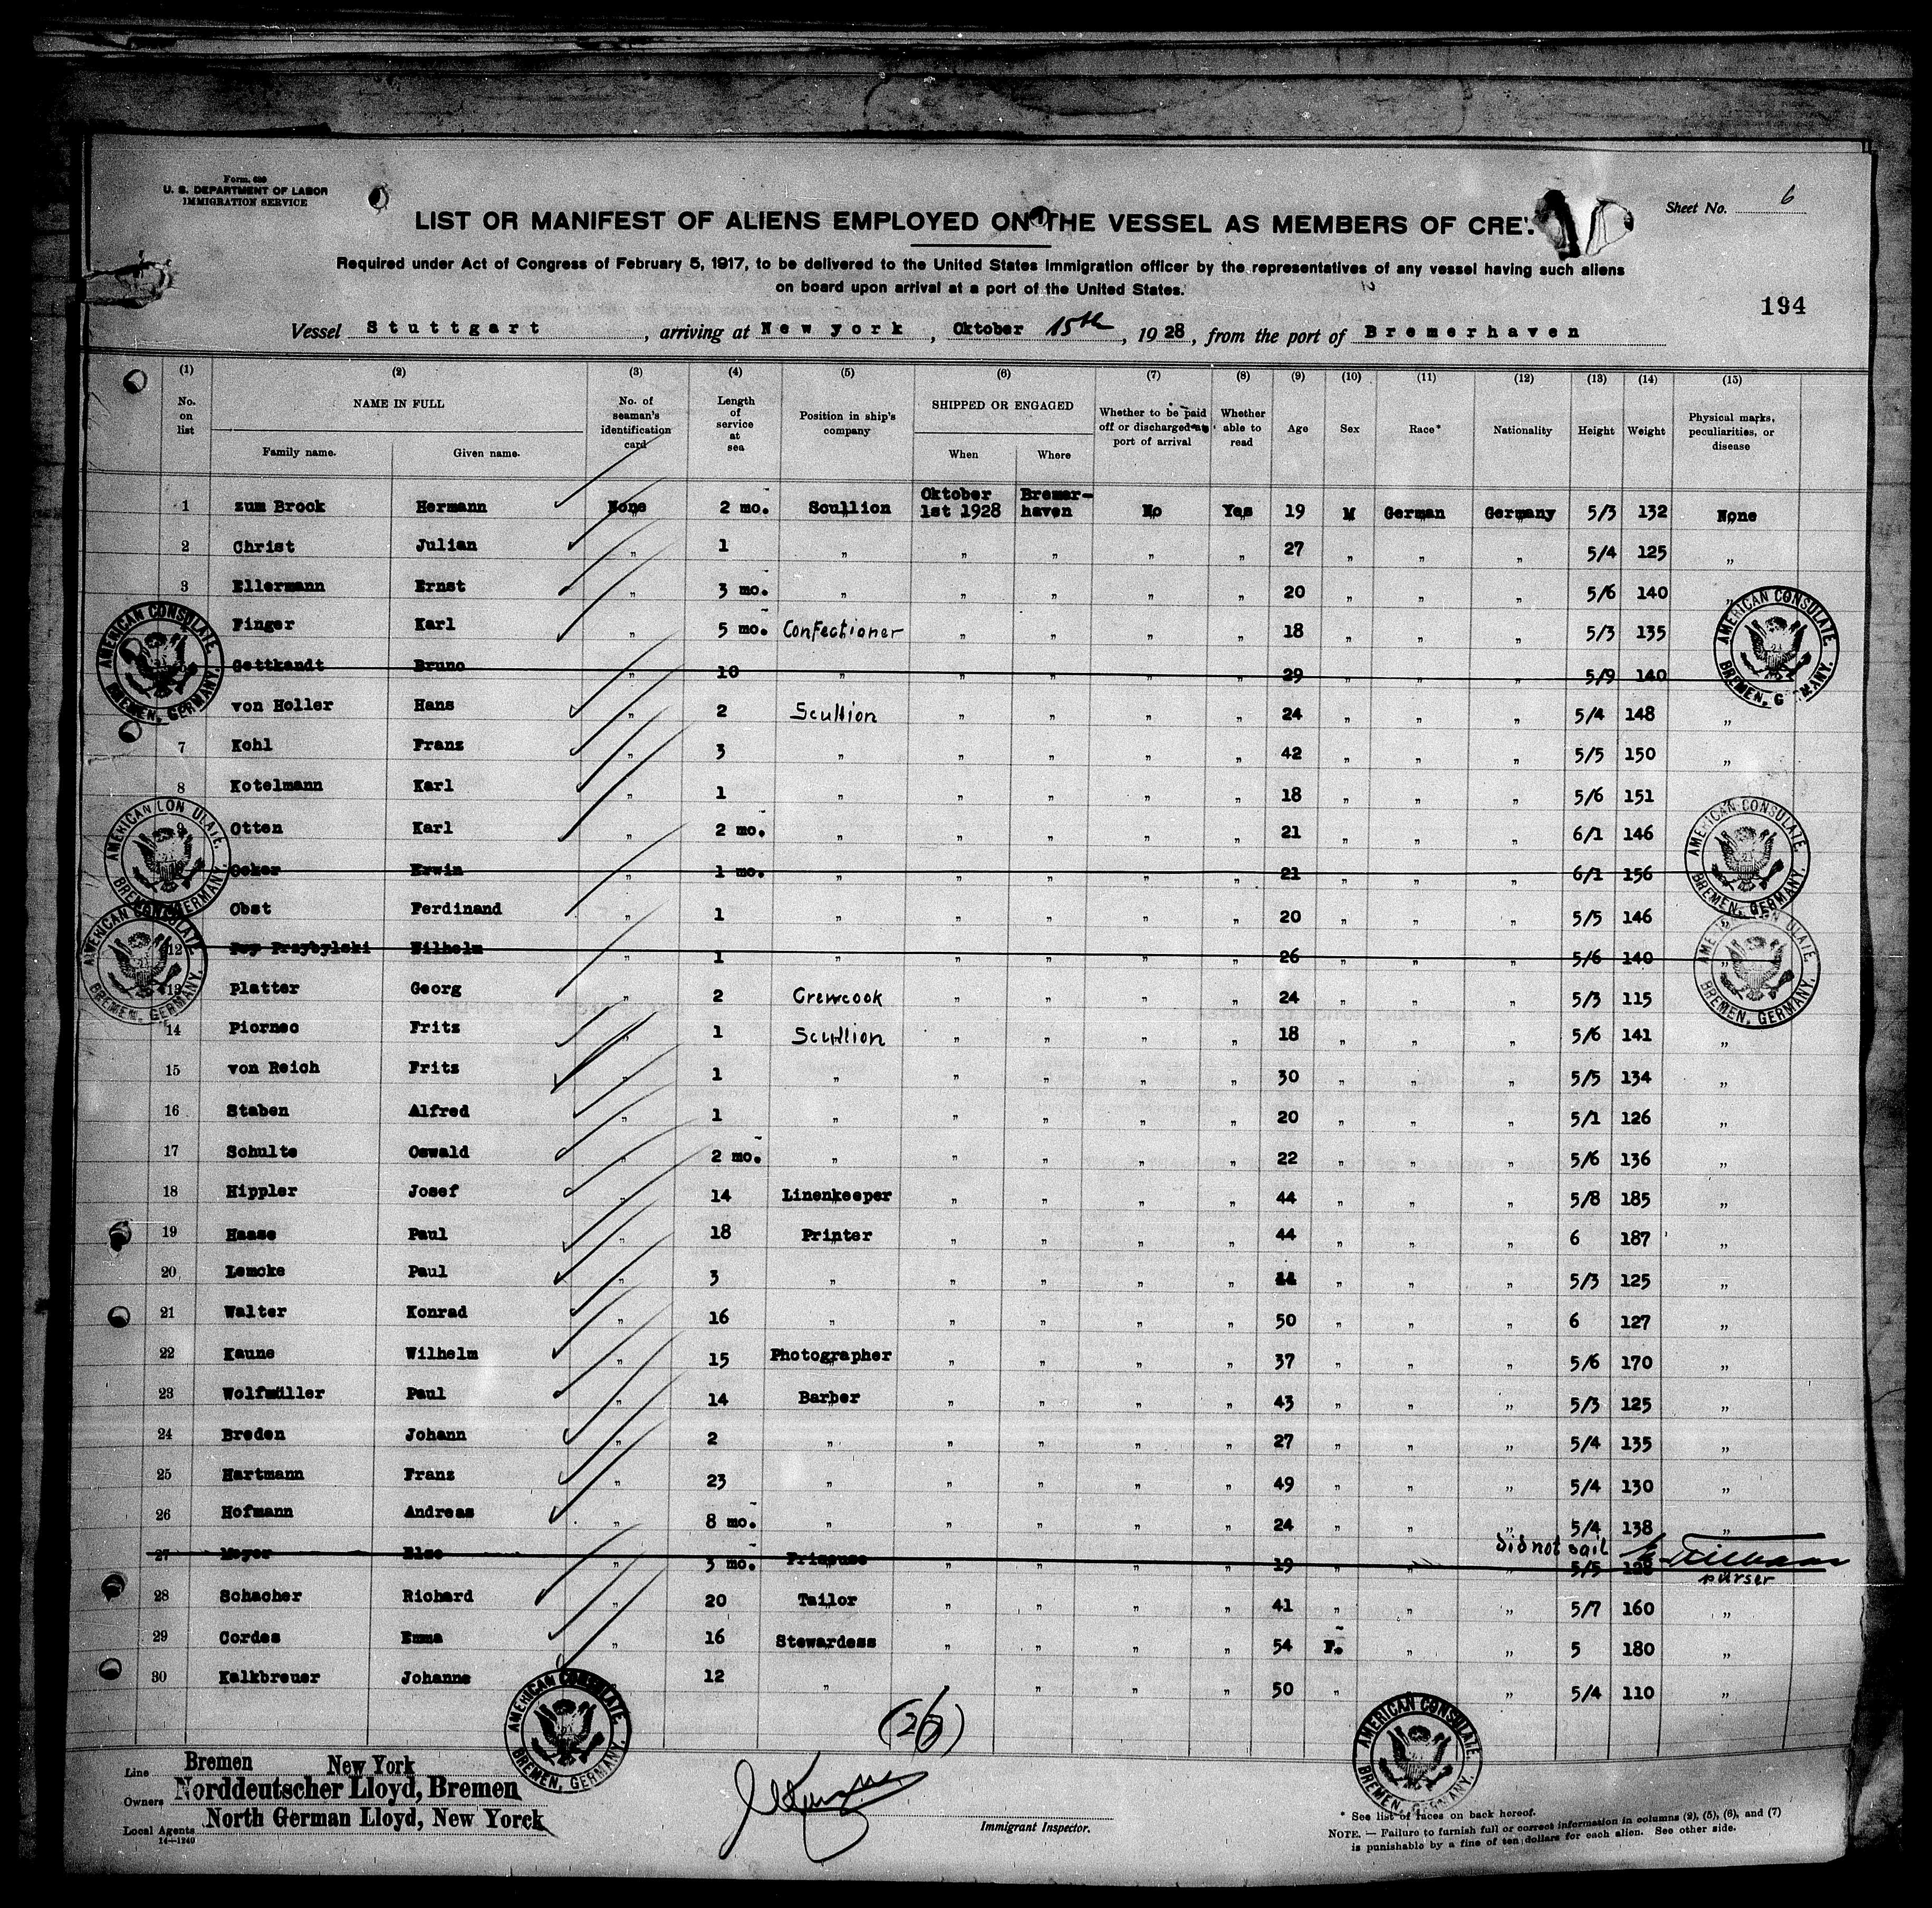 Form. 689
U. S. DEPARTMENT OF LABOR
IMMIGRATION SERVICE
Sheet No. 6
LIST OR MANIFEST OF ALIENS EMPLOYED ON THE VESSEL AS MEMBERS OF CREW
Required under Act of Congress of February 5, 1917, to be delivered to the United States immigration officer by the representatives of any vessel having such aliens
on board upon arrival at a port of the United States.
194
Vessel Stuttgart, arriving at New york, Oktober 15th, 1928, from the port of Bremerhaven
(1) (2) (3) (4) (5) (6) (7) (8) (9) (10) (11) (12) (13) (14) (15)
No. on list NAME IN FULL Family name. Given name. No. of seaman's identification card Length of service at sea Position in ship's company SHIPPED OR ENGAGED When Where Whether to be paid off or discharged at port of arrival Whether able to read Age Sex Race* Nationality Height Weight Physical marks, peculiarities, or disease
1 zum Brook Hermann None 2 mo. Scullion Oktober 1st 1928 Bremerhaven No Yes 19 M German Germany 5/3 132 None
2 Christ Julian " 1 " " " " " 27 " " " 5/4 125 "
3 Ellermann Ernst " 3 mo. " " " " " 20 " " " 5/6 140 "
Finger Karl " 5 mo. Confectioner " " " " 18 " " " 5/3 135
Gettkandt Bruno " 10 " " " " " 29 " " " 5/9 140
von Holler Hans " 2 Scullion " " " " 24 " " " 5/4 148 "
7 Kohl Franz " 3 " " " " " 42 " " " 5/5 150 "
8 Kotelmann Karl " 1 " " " " " 18 " " " 5/6 151
9 Otten Karl " 2 mo. " " " " " 21 " " " 6/1 146
Ocker Erwin " 1 mo. " " " " " 21 " " " 6/1 156
Obst Ferdinand " 1 " " " " " 20 " " " 5/5 146
12 Przybylski Wilhelm " 1 " " " " " 26 " " " 5/6 140 "
13 Platter Georg " 2 Crewcook " " " " 24 " " " 5/3 115
14 Piornec Fritz " 1 Scullion " " " " 18 " " " 5/6 141 "
15 von Reich Fritz " 1 " " " " " 30 " " " 5/5 134 "
16 Staben Alfred " 1 " " " " " 20 " " " 5/1 126 "
17 Schulte Oswald " 2 mo. " " " " " 22 " " " 5/6 136 "
18 Hippler Josef " 14 Linenkeeper " " " " 44 " " " 5/8 185 "
19 Haase Paul " 18 Printer " " " " 44 " " " 6 187 "
20 Lemcke Paul " 3 " " " " " " " " 5/3 125 "
21 Walter Konrad " 16 " " " " " 50 " " " 6 127 "
22 Kaune Wilhelm " 15 Photographer " " " " 37 " " " 5/6 170 "
23 Wolfmüller Paul " 14 Barber " " " " 43 " " " 5/3 125 "
24 Breden Johann " 2 " " " " " 27 " " " 5/4 135 "
25 Hartmann Franz " 23 " " " " " 49 " " " 5/4 130 "
26 Hofmann Andreas " 8 mo. " " " " " 24 " " " 5/4 138 "
did not sail
27 Meyer Else " 3 mo. Friseuse " " " " 19 " " " 5/5 128
purser
28 Schacher Richard " 20 Tailor " " " " 41 " " " 5/7 160 "
29 Cordes Emma " 16 Stewardess " " " " 54 F. " " 5 180 "
30 Kalkbreuer Johanne 12 " " " " 50 " " 5/4 110 "
(26)
AMERICAN CONSULATE. BREMEN, GERMANY.
AMERICAN CONSULATE. BREMEN, GERMANY.
AMERICAN CONSULATE. BREMEN, GERMANY.
AMERICAN CONSULATE. BREMEN, GERMANY.
AMERICAN CONSULATE. BREMEN, GERMANY.
AMERICAN CONSULATE. BREMEN, GERMANY.
AMERICAN CONSULATE. BREMEN, GERMANY.
AMERICAN CONSULATE. BREMEN, GERMANY.
Line Bremen New York
Owners Norddeutscher Lloyd, Bremen
Local Agents North German Lloyd, New Yorck
14—1240
Immigrant Inspector.
* See list of races on back hereof.
NOTE. — Failure to furnish full or correct information in columns (2), (5), (6), and (7)
is punishable by a fine of ten dollars for each alien. See other side.